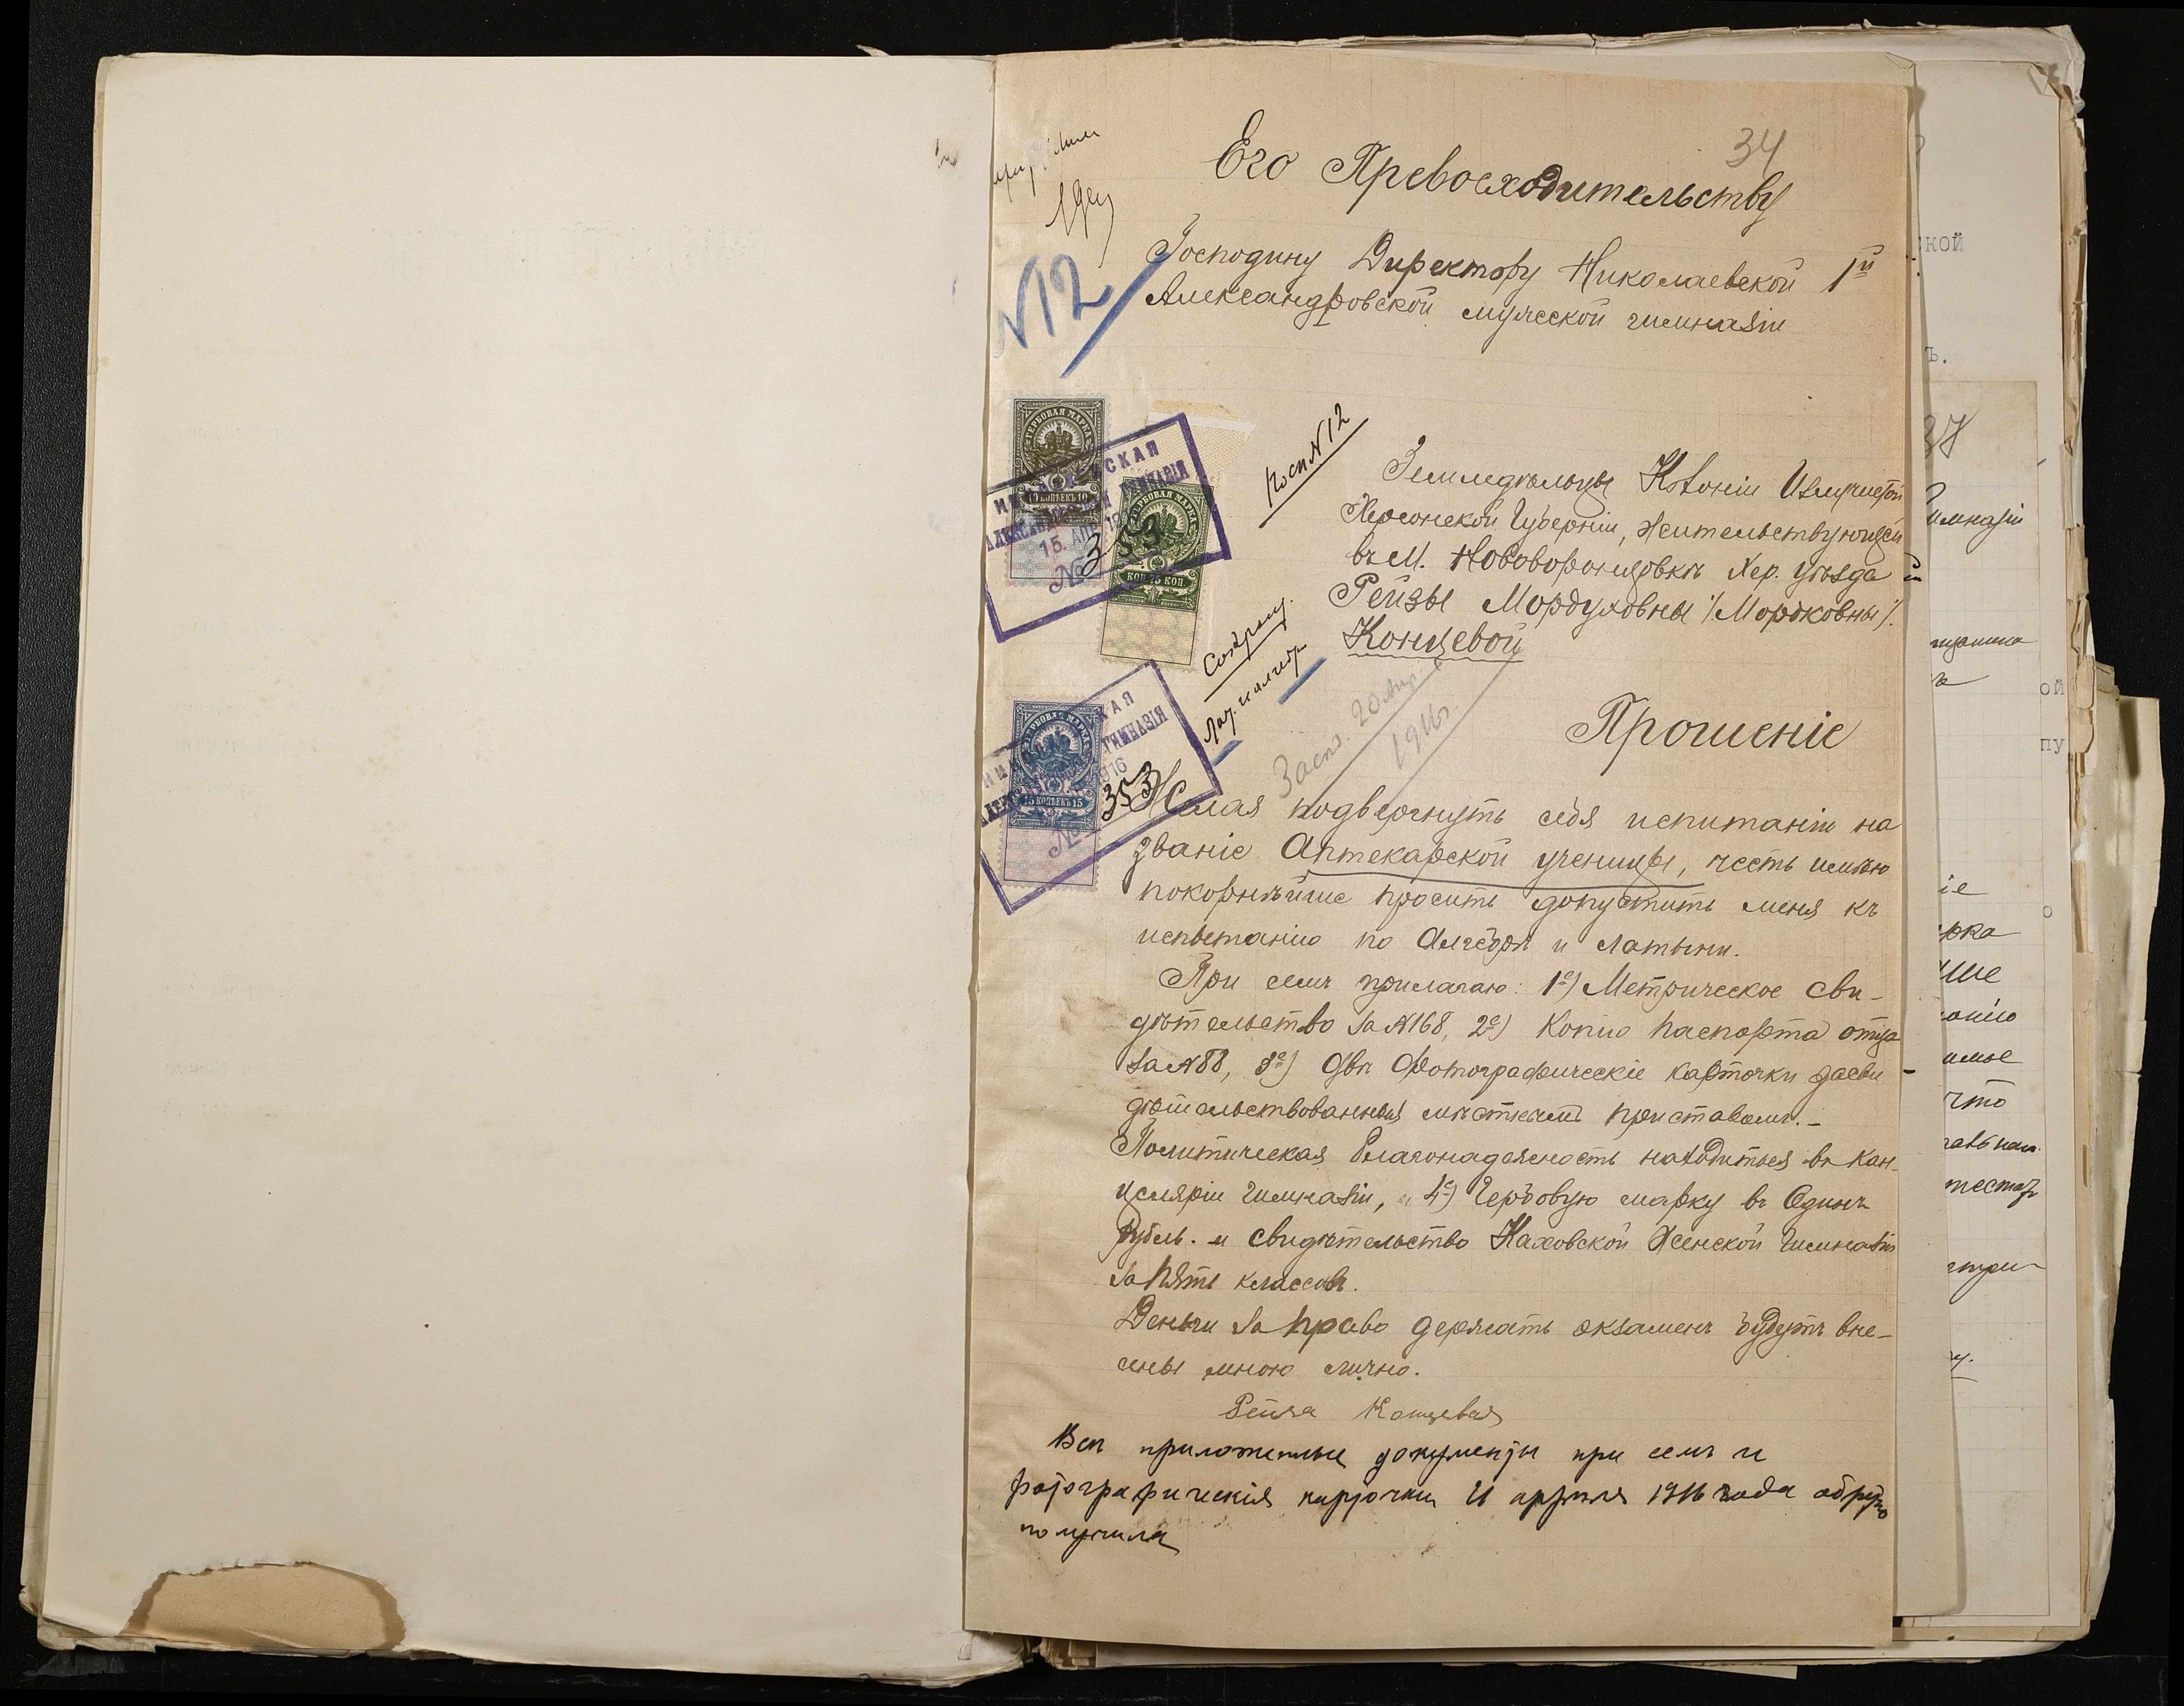 34
Его Превосходительству
Господину Директору Николаевской 1й
Александровской мужской гимназіи
N12
ГЕРБОВАЯ МАРКА
10 КОПѢЕКЪ 10
ГЕРБОВАЯ МАРКА
КОП 75 КОП.
15. АП
№ 353
N12
Земледѣльцы Колоніи Излучистой
Херсонской Губерніи, жительствующей
въ М. Нововоронцовкѣ Хер. Уѣзда
Рейзы Мордуховны /Мордковны/.
Концевой
20 Апр.
1916г.
Прошеніе
ГЕРБОВАЯ МАРКА
15 КОПѢЕКЪ 15
ГИМНАЗІЯ
1916
№ 353
Желая подвергнуть себя испитанію на
званіе Аптекарской ученицы, честь имѣю
покорнѣйше просить допустить меня къ
испытанію по Алгебрѣ и латыни.
При семъ прилагаю: 1е) Метрическое сви-
дѣтельство за N168, 2е) Копію паспорта отца
за N88, 3е) Двѣ Фотографическіе карточки засви
дѣтельствованныя мѣстнымъ приставомъ. –
Политическая благонадежность находиться въ Кан-
целяріи гимназіи, и 4е) Гербовую марку въ Одинъ
рубль. и свидѣтельство Каховской Женской Гимназіи
за пять классовъ.
Деньги за право держать экзаменъ будутъ вне-
сены мною лично.
Рейза Концевая
Всѣ приложенные документы при семъ и
фотографическія карточки 21 апрѣля 1916 года обратно
получила